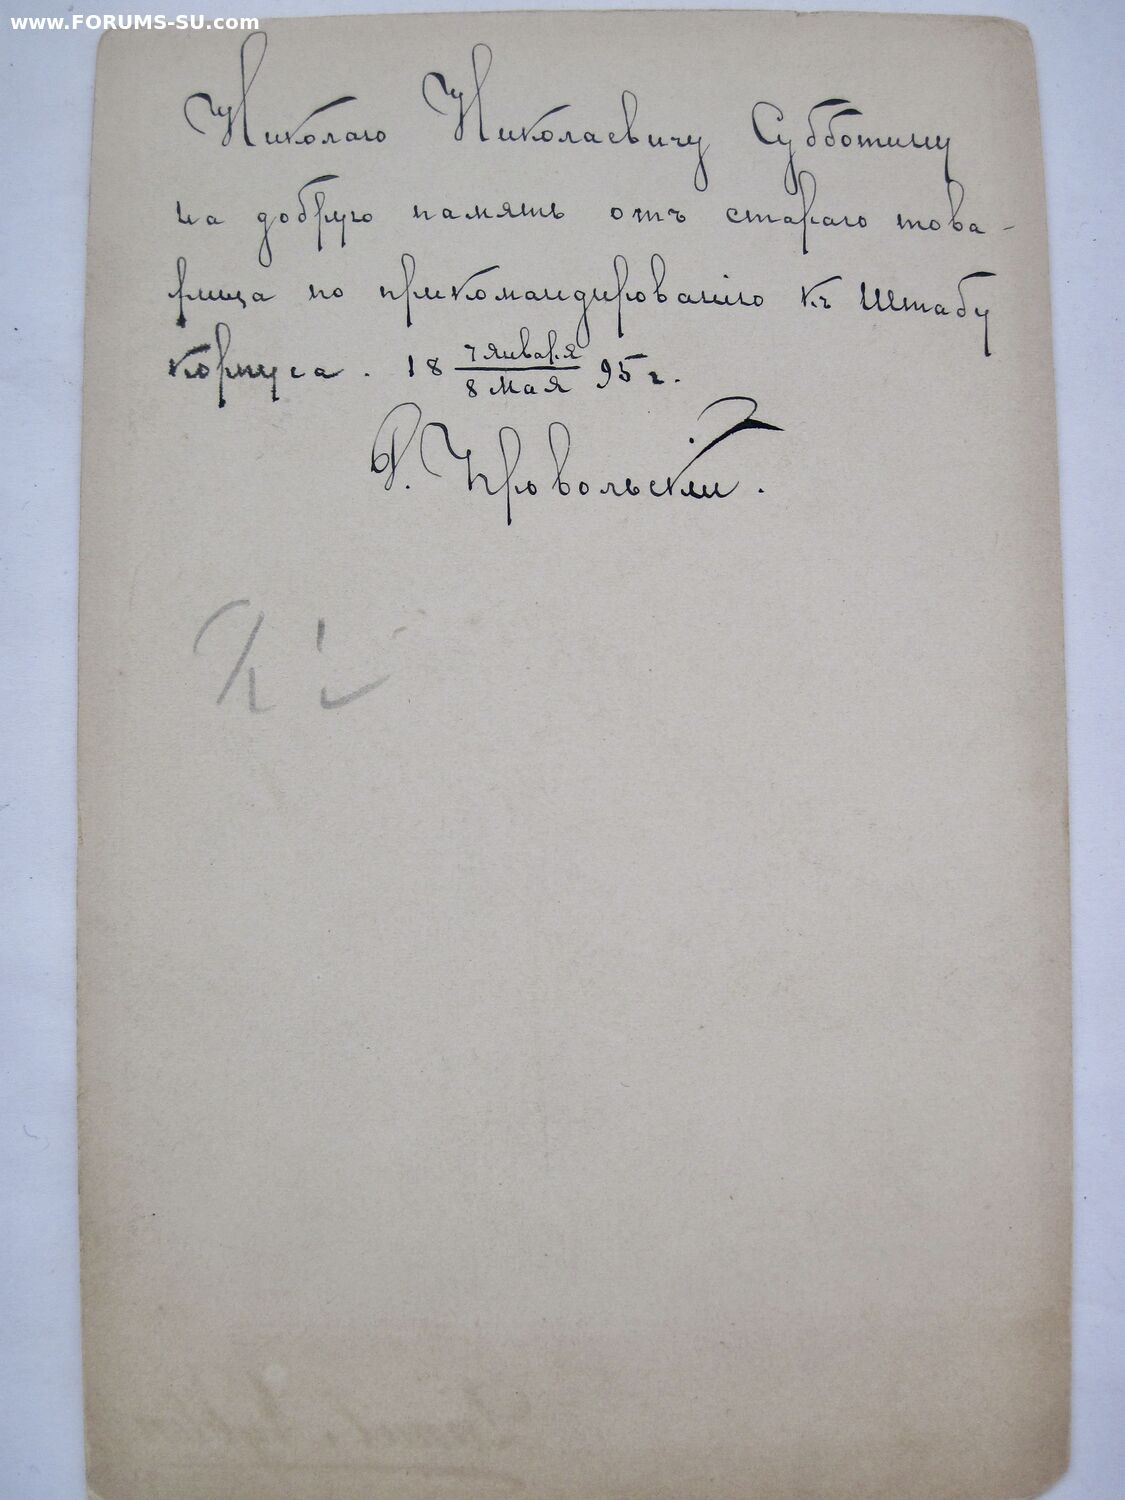 www.FORUMS-SU.com
Николаю Николаевичу Субботину
на добрую память отъ стараго това-
рища по прикомандированiю къ Штабу
Корпуса. 18 7 января / 8 мая 95 г.